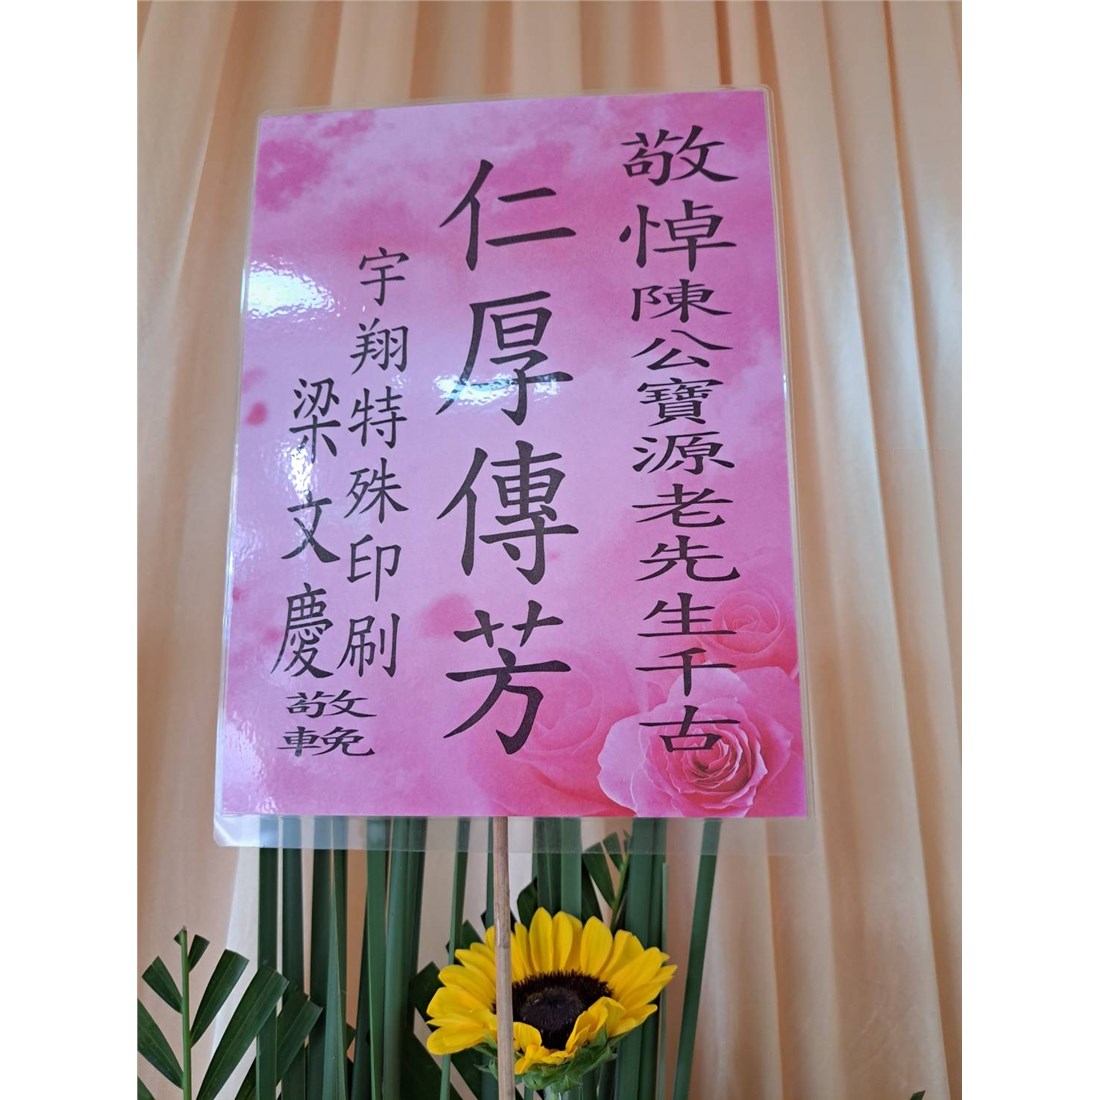 敬悼陳公寶源老先生千古
仁厚傳芳
宇翔特殊印刷
梁文慶
敬輓